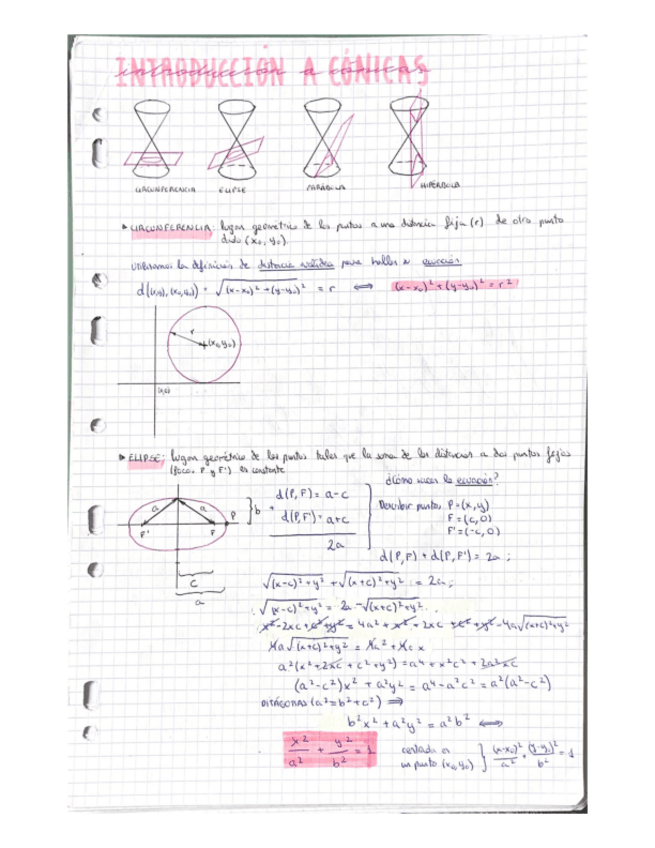 INTRODUCCIÓN A CÓNICAS
introducción a cónicas
CIRCUNFERENCIA ELIPSE PARÁBOLA HIPÉRBOLA
▸ CIRCUNFERENCIA: lugar geométrico de los puntos a una distancia fija (r) de otro punto
dado (x₀, y₀).
Utilizamos la definición de distancia euclídea para hallar su ecuación
d((x,y),(x₀,y₀)) = √((x-x₀)²+(y-y₀)²) = r ⟺ (x-x₀)²+(y-y₀)² = r²
r
(x₀,y₀)
(0,0)
▸ ELIPSE: lugar geométrico de los puntos tales que la suma de las distancias a dos puntos fijos
(focos F y F') es constante
¿Cómo sacar la ecuación?
a a b P
F' F
C
a
d(P,F) = a-c
+
d(P,F') = a+c
2a
Describir puntos P=(x,y)
F=(c,0)
F'=(-c,0)
d(P,F) + d(P,F') = 2a;
√((x-c)²+y²) + √((x+c)²+y²) = 2a;
√((x-c)²+y²) = 2a - √((x+c)²+y²)
x²-2xc+c²+y² = 4a²+x²+2xc+c²+y²-4a√((x+c)²+y²)
4a√((x+c)²+y²) = 4a²+4cx
a²(x²+2xc+c²+y²) = a⁴+x²c²+2a²xc
(a²-c²)x²+a²y² = a⁴-a²c² = a²(a²-c²)
PITÁGORAS (a²=b²+c²) ⟹
b²x²+a²y² = a²b² ⟺
x²/a² + y²/b² = 1
centrada en
un punto (x₀,y₀) } (x-x₀)²/a² + (y-y₀)²/b² = 1